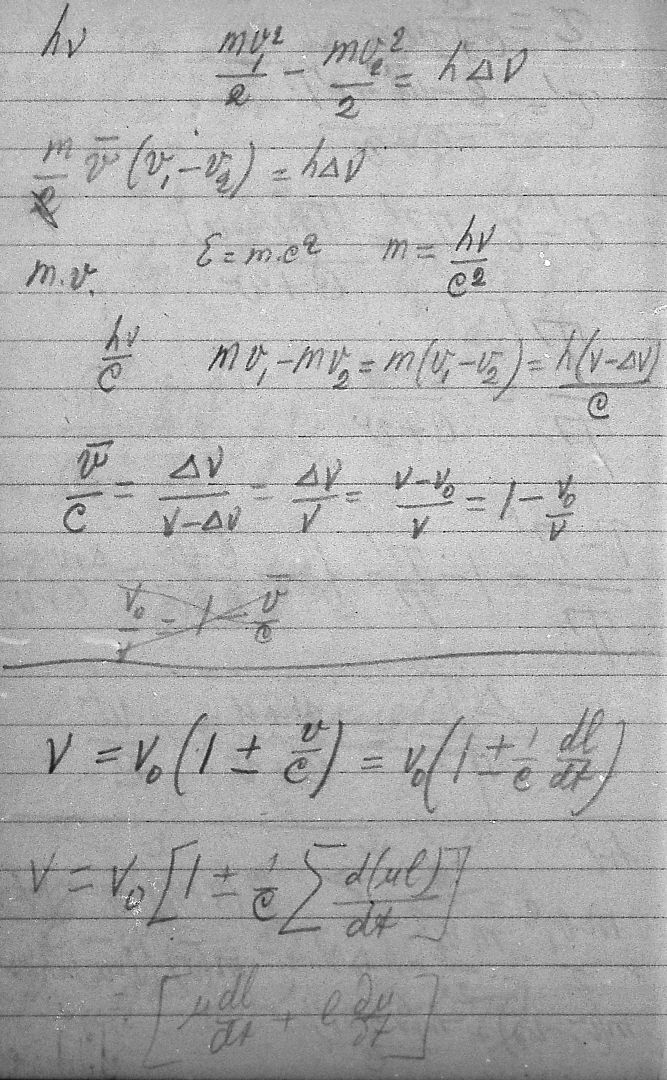 hν    mv₁²/2 − mv₂²/2 = hΔν
m/2 v̄ (v₁ − v₂) = hΔν
m.v.    ε = m.c²    m = hν/c²
hν/c    mv₁ − mv₂ = m(v₁ − v₂) = h(ν − Δν)/c
v̄/c = Δν/(ν − Δν) = Δν/ν = (ν − ν₀)/ν = 1 − ν₀/ν
ν₀/ν = 1 − v̄/c
ν = ν₀(1 ± v/c) = ν₀(1 ± 1/c dl/dt)
ν = ν₀[1 ± 1/c ∑ d(μl)/dt]
[μ dl/dt + l ∂μ/∂t]